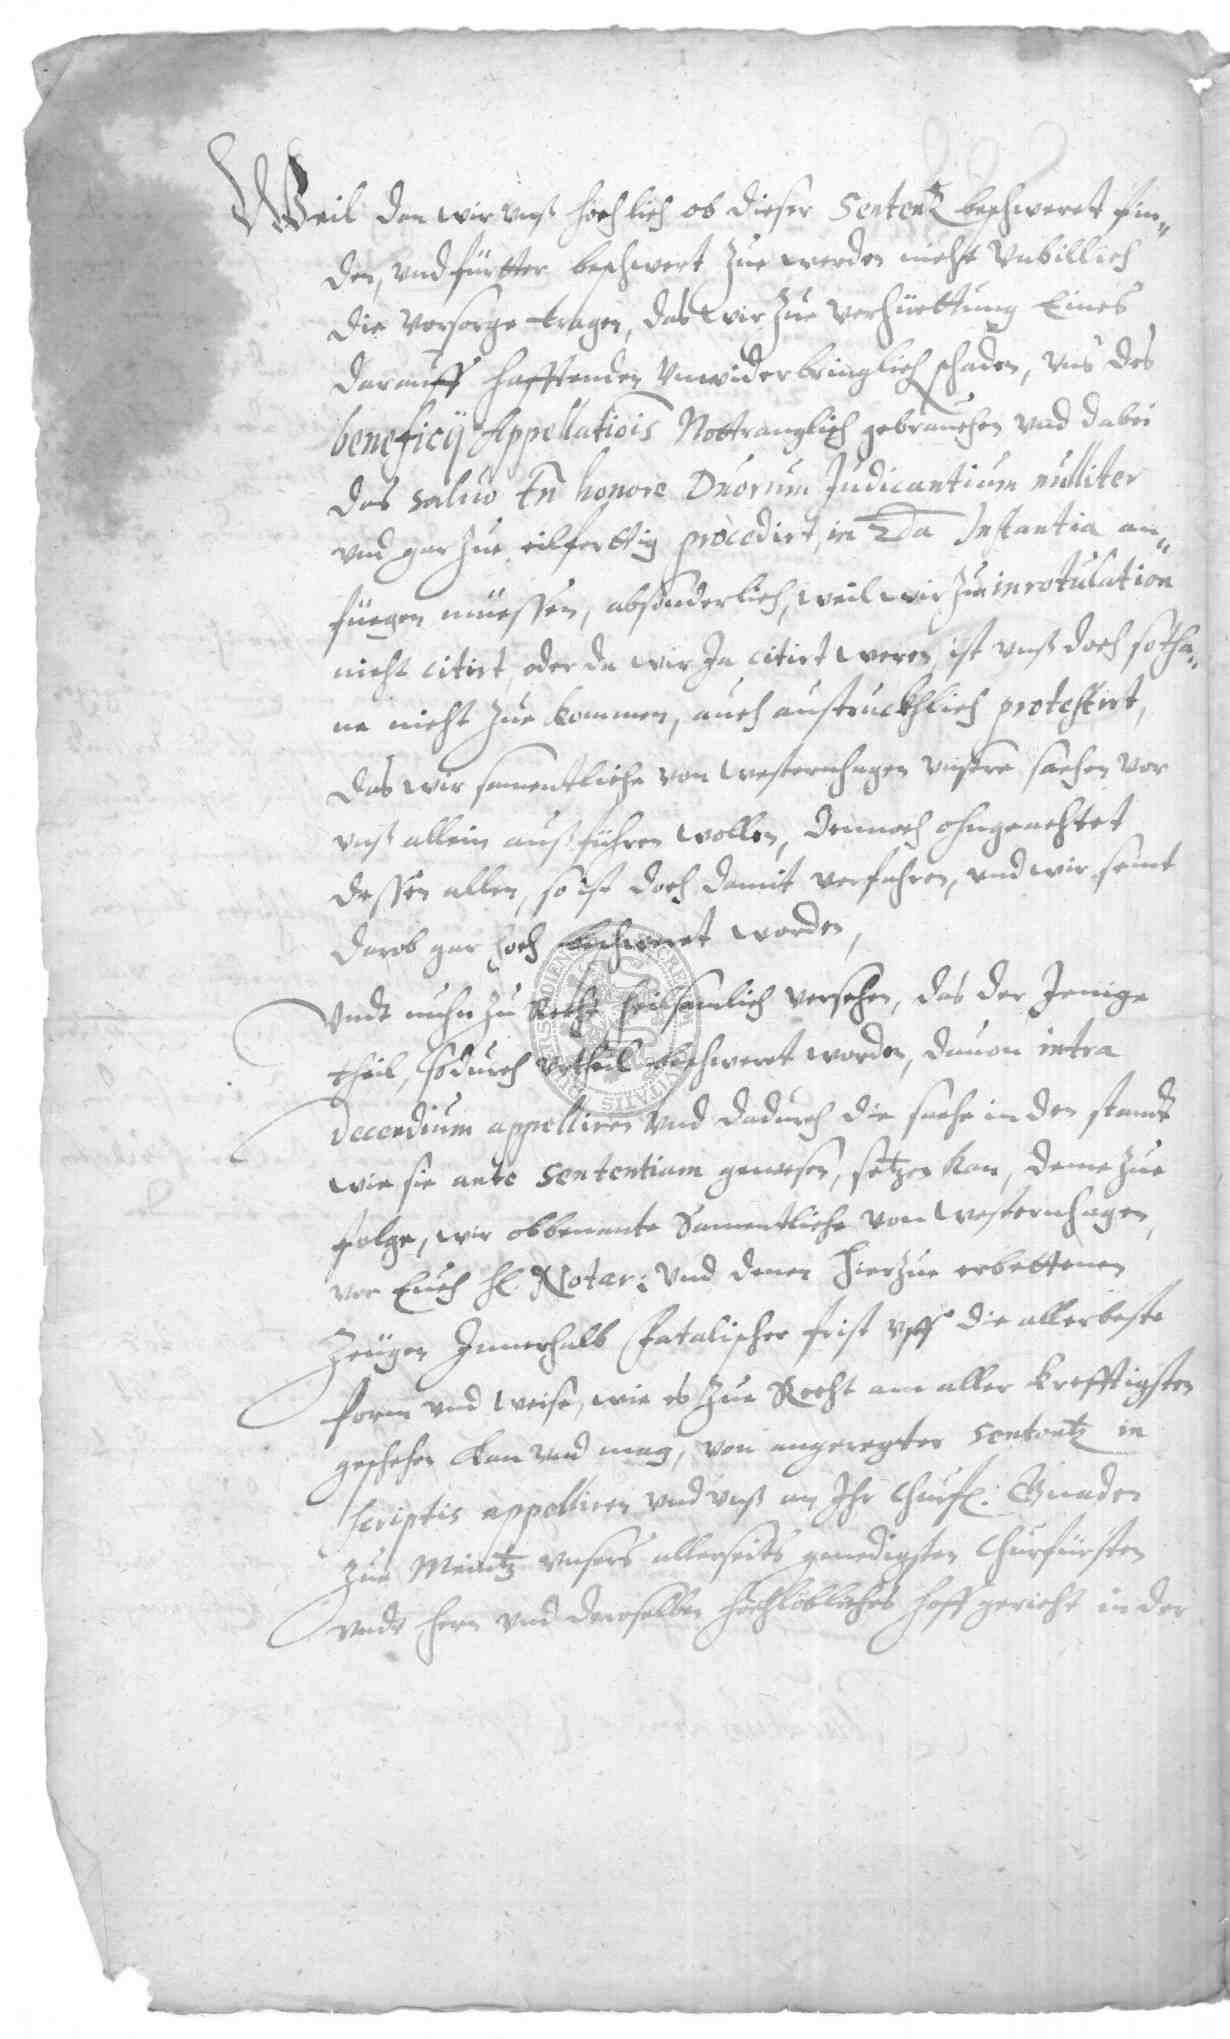 Weil dan wir vnß höchlich ob dieser Sententz beschweret fin„
den, vnd fürtter beschwert zue werden nicht vnbillich
die vorsorge tragen, das wir zue verhüettung Eines
darauff hafftenden vnwiderbringlich schaden, vns des
beneficÿ Appellatiois Nottranglich gebrauchen vnd dabei
das saluo tn̄ honore Dnorum Judicantium nulliter
vnd gar zue eilferttig procedirt, in 2da Instantia an„
füegen müessen, absonderlich, weil wir zue inrotulation
nicht citirt, oder da wir Ja citirt weren, ist vnß doch sotha„
ne nicht zue kommen, auch austruckhlich protestirt,
das wir samentliche von Westernhagen vnsere sachen vor
vnß allein außführen wollen, dennoch ohngeachtet
dessen allen, so ist doch damit verfahren, vnd wir samt
darob gar hoch beschweret worden,
Vndt nuhn zu Recht heilsamlich versehen, das der Jenige
theil, so durch vrtheil beschweret worden, dauon intra
decendium appelliren vnd dadurch die sache in den standt
wie sie ante Sententiam gewesen, setzen kan, deme zue
folge, wir obbenante Samentliche von Westernhagen,
vor Euch H. Notar: vnd denen hierzue erbettenen
Zeügen Innerhalb fatalischer frist vff die allerbeste
form vnd weise, wie es zue Recht am aller krefftigsten
geschehen kan vnd mag, von angeregter Sententz in
scriptis appelliren vnd vnß an Ihr Churf: Gnaden
zue Meintz vnsers allerseits genedigsten Churfürsten
vndt Hern vnd deroselben hochlöbliches Hoffgericht in der